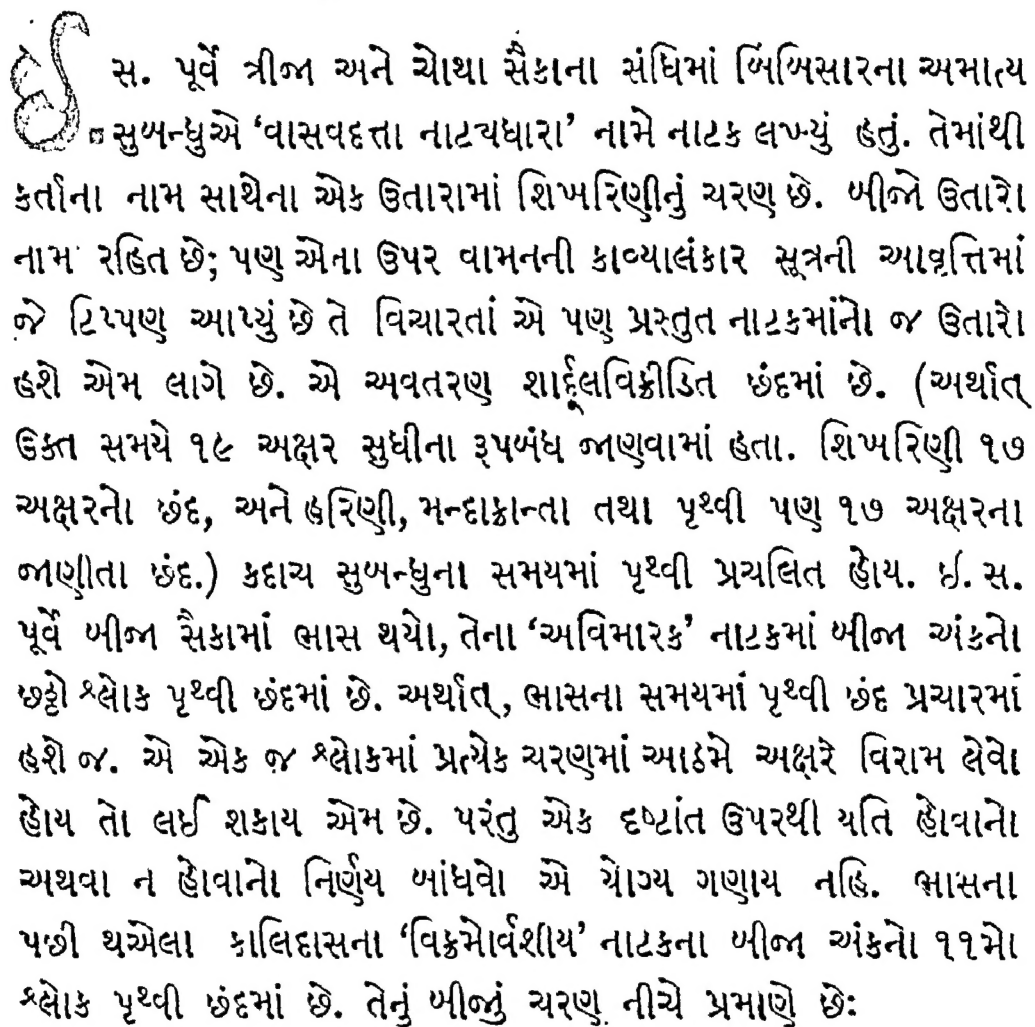 ઈ. સ. પૂર્વે ત્રીજા અને ચોથા સૈકાના સંધિમાં બિંબિસારના અમાત્ય
સુબન્ધુએ ‘વાસવદત્તા નાટ્યધારા’ નામે નાટક લખ્યું હતું. તેમાંથી
કર્તાના નામ સાથેના એક ઉતારામાં શિખરિણીનું ચરણ છે. બીજો ઉતારો
નામ રહિત છે; પણ એના ઉપર વામનની કાવ્યાલંકાર સૂત્રની આવૃત્તિમાં
જે ટિપ્પણ આપ્યું છે તે વિચારતાં એ પણ પ્રસ્તુત નાટકમાંનો જ ઉતારો
હશે એમ લાગે છે. એ અવતરણ શાર્દૂલવિક્રીડિત છંદમાં છે. (અર્થાત્
ઉક્ત સમયે ૧૯ અક્ષર સુધીના રૂપબંધ જાણવામાં હતા. શિખરિણી ૧૭
અક્ષરનો છંદ, અને હરિણી, મન્દાક્રાન્તા તથા પૃથ્વી પણ ૧૭ અક્ષરના
જાણીતા છંદ.) કદાચ સુબન્ધુના સમયમાં પૃથ્વી પ્રચલિત હોય. ઈ. સ.
પૂર્વે બીજા સૈકામાં ભાસ થયો, તેના ‘અવિમારક’ નાટકમાં બીજા અંકનો
છઠ્ઠો શ્લોક પૃથ્વી છંદમાં છે. અર્થાત્, ભાસના સમયમાં પૃથ્વી છંદ પ્રચારમાં
હશે જ. એ એક જ શ્લોકમાં પ્રત્યેક ચરણમાં આઠમે અક્ષરે વિરામ લેવો
હોય તો લઈ શકાય એમ છે. પરંતુ એક દષ્ટાંત ઉપરથી યતિ હોવાનો
અથવા ન હોવાનો નિર્ણય બાંધવો એ યોગ્ય ગણાય નહિ. ભાસના
પછી થએલા કાલિદાસના ‘વિક્રમોર્વશીય’ નાટકના બીજા અંકનો ૧૧મો
શ્લોક પૃથ્વી છંદમાં છે. તેનું બીજું ચરણ નીચે પ્રમાણે છેઃ